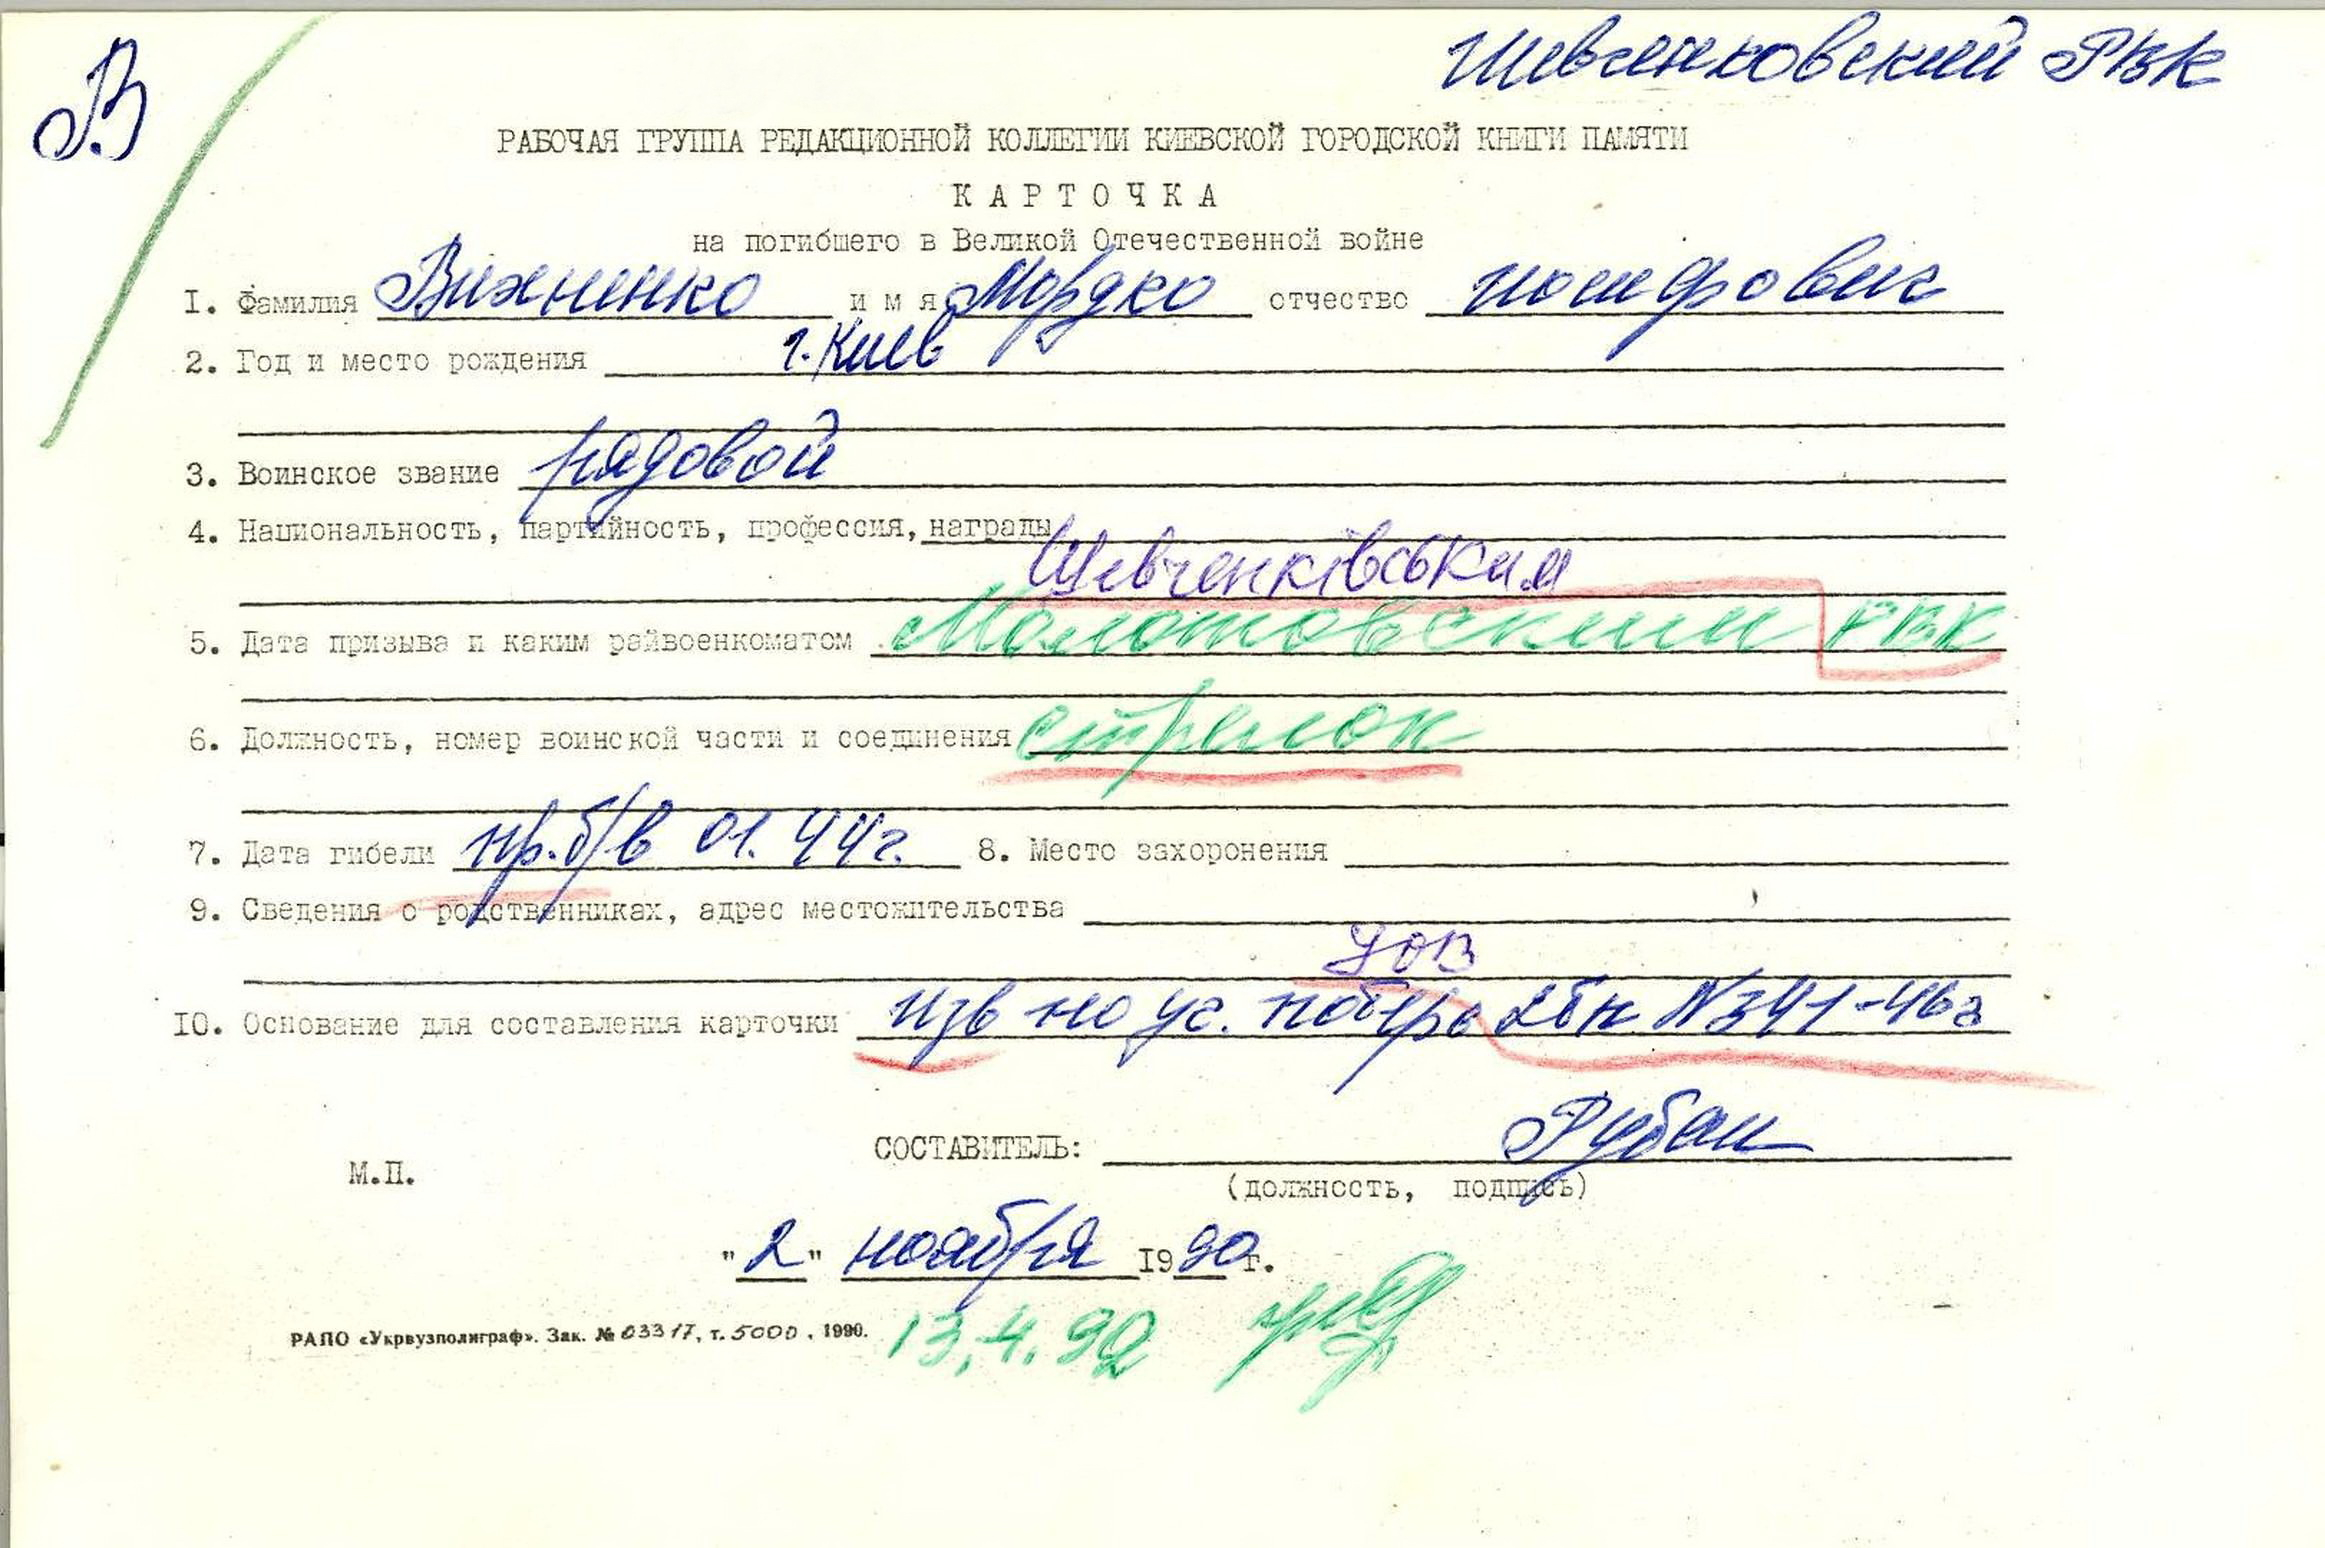 В
Шевченковский РВК
РАБОЧАЯ ГРУППА РЕДАКЦИОННОЙ КОЛЛЕГИИ КИЕВСКОЙ ГОРОДСКОЙ КНИГИ ПАМЯТИ
КАРТОЧКА
на погибшего в Великой Отечественной войне
I. Фамилия Вихненко имя Мордко отчество Иосифович
2. Год и место рождения г. Киев
3. Воинское звание рядовой
4. Национальность, партийность, профессия, награды
Шевченківським
5. Дата призыва и каким райвоенкоматом Молотовский РВК
6. Должность, номер воинской части и соединения стрелок
7. Дата гибели пр. б/в 01.44г. 8. Место захоронения
9. Сведения о родственниках, адрес местожительства
10. Основание для составления карточки изв по уч. №341-46г
СОСТАВИТЕЛЬ: Рубан
М.П.
(должность, подпись)
"2" ноября 1990 г.
РАПО «Укрвузполиграф». Зак. № 03317, т. 5000, 1990.
13.4.92